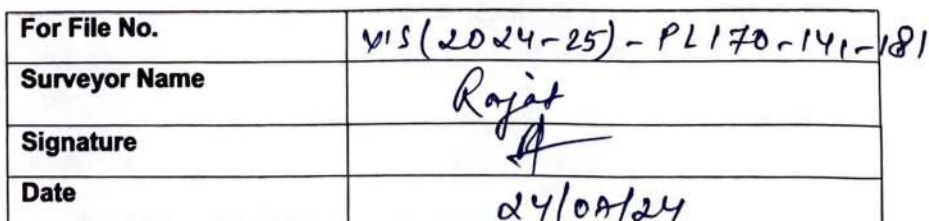 For File No. VIS(2024-25)-PL170-141-181
Surveyor Name Rajat
Signature
Date